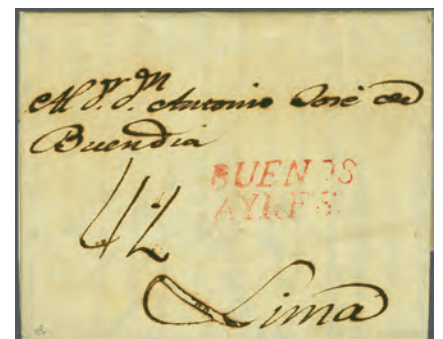 Al S.r D.n Antonio José de
Buendia
BUENOS
AYRES.
42
Lima